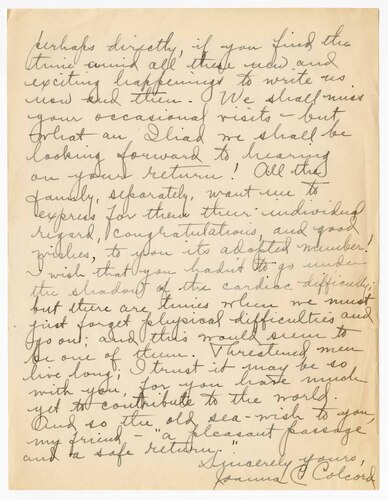 perhaps directly, if you find the
time amid all these new and
exciting happenings to write us
now and then. We shall miss
your occasional visits - but
what an Iliad we shall be
looking forward to hearing
on your return! All the
family, separately, want me to
express for them their individual
regard, congratulations, and good
wishes, to you its adopted member!
I wish that you hadn't to go under
the shadow of the cardiac difficulty;
but there are times when we must
just forget physical difficulties and
go on; and this would seem to
be one of them. Threatened men
live long; I trust it may be so
with you, for you have much
yet to contribute to the world.
And so the old sea-wish to you,
my friend - "a pleasant passage
and a safe return."
Sincerely yours,
Joanna C Colcord